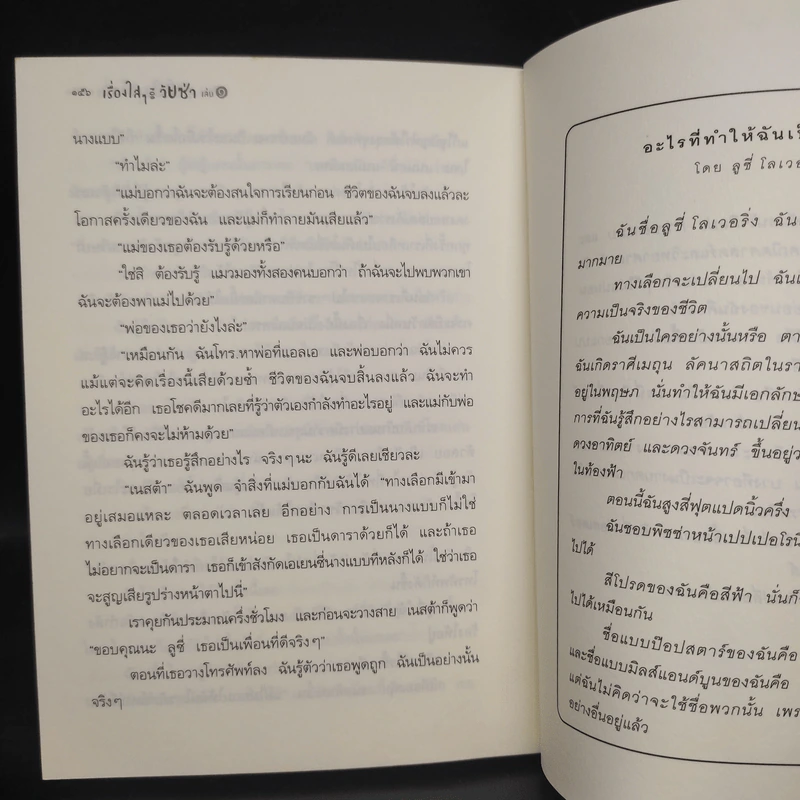 ๑๕๖ เรื่องใสๆ วัยซ่า เล่ม ๑
นางแบบ"
"ทำไมล่ะ"
"แม่บอกว่าฉันจะต้องสนใจการเรียนก่อน ชีวิตของฉันจบลงแล้วละ
โอกาสครั้งเดียวของฉัน และแม่ก็ทำลายมันเสียแล้ว"
"แม่ของเธอต้องรับรู้ด้วยหรือ"
"ใช่สิ ต้องรับรู้ แมวมองทั้งสองคนบอกว่า ถ้าฉันจะไปพบพวกเขา
ฉันจะต้องพาแม่ไปด้วย"
"พ่อของเธอว่ายังไงล่ะ"
"เหมือนกัน ฉันโทร.หาพ่อที่แอลเอ และพ่อบอกว่า ฉันไม่ควร
แม้แต่จะคิดเรื่องนี้เสียด้วยซ้ำ ชีวิตของฉันจบสิ้นลงแล้ว ฉันจะทำ
อะไรได้อีก เธอโชคดีมากเลยที่รู้ว่าตัวเองกำลังทำอะไรอยู่ และแม่กับพ่อ
ของเธอก็คงจะไม่ห้ามด้วย"
ฉันรู้ว่าเธอรู้สึกอย่างไร จริงๆนะ ฉันรู้ดีเลยเชียวละ
"เนสต้า" ฉันพูด จำสิ่งที่แม่บอกกับฉันได้ "ทางเลือกมีเข้ามา
อยู่เสมอแหละ ตลอดเวลาเลย อีกอย่าง การเป็นนางแบบก็ไม่ใช่
ทางเลือกเดียวของเธอเสียหน่อย เธอเป็นดาราด้วยก็ได้ และถ้าเธอ
ไม่อยากจะเป็นดารา เธอก็เข้าสังกัดเอเยนซี่นางแบบทีหลังก็ได้ ใช่ว่าเธอ
จะสูญเสียรูปร่างหน้าตาไปนี่"
เราคุยกันประมาณครึ่งชั่วโมง และก่อนจะวางสาย เนสต้าก็พูดว่า
"ขอบคุณนะ ลูซี่ เธอเป็นเพื่อนที่ดีจริงๆ"
ตอนที่เธอวางโทรศัพท์ลง ฉันรู้ตัวว่าเธอพูดถูก ฉันเป็นอย่างนั้น
จริงๆ
อะไรที่ทำให้ฉันเ
โดย ลูซี่ โลเวอ
ฉันชื่อลูซี่ โลเวอริ่ง ฉัน
มากมาย
ทางเลือกจะเปลี่ยนไป ฉัน
ความเป็นจริงของชีวิต
ฉันเป็นใครอย่างนั้นหรือ ตา
ฉันเกิดราศีเมถุน ลัคนาสถิตในรา
อยู่ในพฤษภ นั่นทำให้ฉันมีเอกลักษ
การที่ฉันรู้สึกอย่างไรสามารถเปลี่ยน
ดวงอาทิตย์ และดวงจันทร์ ขึ้นอยู่ว
ในท้องฟ้า
ตอนนี้ฉันสูงสี่ฟุตแปดนิ้วครึ่ง
ฉันชอบพิซซ่าหน้าเปปเปอโรนี
ไปได้
สีโปรดของฉันคือสีฟ้า นั่นก็
ไปได้เหมือนกัน
ชื่อแบบป๊อปสตาร์ของฉันคือ
และชื่อแบบมิลส์แอนด์บูนของฉันคือ
แต่ฉันไม่คิดว่าจะใช้ชื่อพวกนั้น เพร
อย่างอื่นอยู่แล้ว